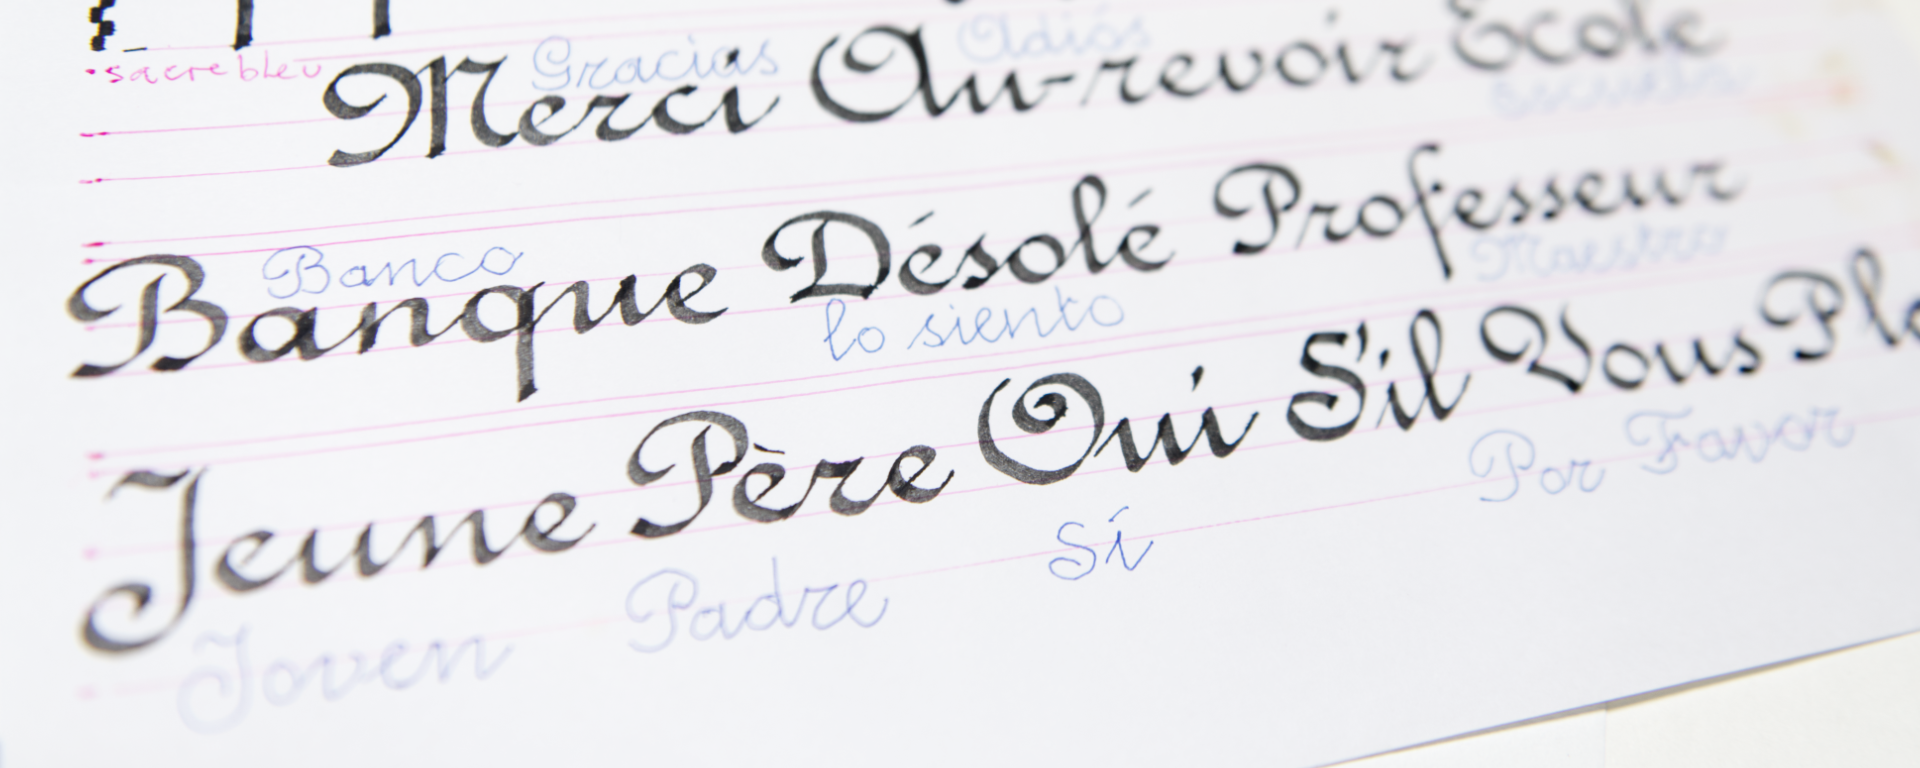 sacrebleu
Gracias Adiós
Merci Au-revoir Ecole
Escuela
Banque Désolé Professeur
Banco
lo siento Maestro
Jeune Père Oui S'il Vous
Joven Padre Sí Por Favor